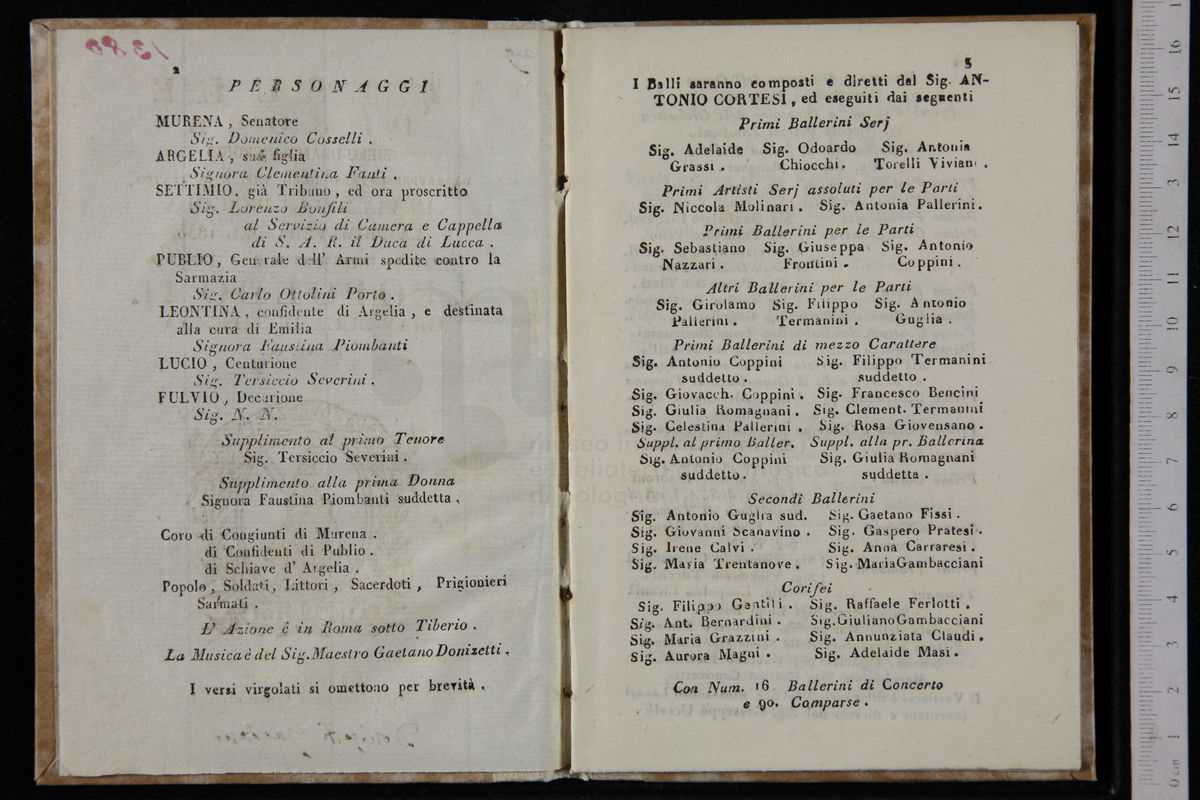 1380
2
PERSONAGGI
MURENA, Senatore
Sig. Domenico Cosselli.
ARGELIA, sua figlia
Signora Clementina Fanti.
SETTIMIO, già Tribuno, ed ora proscritto
Sig. Lorenzo Bonfili
al Servizio di Camera e Cappella
di S. A. R. il Duca di Lucca.
PUBLIO, Generale dell' Armi spedite contro la
Sarmazia
Sig. Carlo Ottolini Porto.
LEONTINA, confidente di Argelia, e destinata
alla cura di Emilia
Signora Faustina Piombanti
LUCIO, Centurione
Sig. Tersiccio Severini.
FULVIO, Decurione
Sig. N. N.
Supplimento al primo Tenore
Sig. Tersiccio Severini.
Supplimento alla prima Donna
Signora Faustina Piombanti suddetta.
Coro di Congiunti di Murena.
di Confidenti di Publio.
di Schiave d' Argelia.
Popolo, Soldati, Littori, Sacerdoti, Prigionieri
Sarmati.
L' Azione è in Roma sotto Tiberio.
La Musica è del Sig. Maestro Gaetano Donizetti.
I versi virgolati si omettono per brevità.
3
I Balli saranno composti e diretti dal Sig. AN-
TONIO CORTESI, ed eseguiti dai seguenti
Primi Ballerini Serj
Sig. Adelaide Sig. Odoardo Sig. Antonia
Grassi. Chiocchi. Torelli Viviani.
Primi Artisti Serj assoluti per le Parti
Sig. Niccola Molinari. Sig. Antonia Pallerini.
Primi Ballerini per le Parti
Sig. Sebastiano Sig. Giuseppa Sig. Antonio
Nazzari. Frontini. Coppini.
Altri Ballerini per le Parti
Sig. Girolamo Sig. Filippo Sig. Antonio
Pallerini. Termanini. Guglia.
Primi Ballerini di mezzo Carattere
Sig. Antonio Coppini Sig. Filippo Termanini
suddetto. suddetto.
Sig. Giovacch. Coppini. Sig. Francesco Bencini
Sig. Giulia Romagnani. Sig. Clement. Termanini
Sig. Celestina Pallerini. Sig. Rosa Giovensano.
Suppl. al primo Baller. Suppl. alla pr. Ballerina
Sig. Antonio Coppini Sig. Giulia Romagnani
suddetto. suddetta.
Secondi Ballerini
Sig. Antonio Guglia sud. Sig. Gaetano Fissi.
Sig. Giovanni Scanavino. Sig. Gaspero Pratesi.
Sig. Irene Calvi. Sig. Anna Carraresi.
Sig. Maria Trentanove. Sig. Maria Gambacciani
Corifei
Sig. Filippo Gentili. Sig. Raffaele Ferlotti.
Sig. Ant. Bernardini. Sig. Giuliano Gambacciani
Sig. Maria Grazzini. Sig. Annunziata Claudi.
Sig. Aurora Magni. Sig. Adelaide Masi.
Con Num. 16 Ballerini di Concerto
e 90. Comparse.
0 cm 1 2 3 4 5 6 7 8 9 10 11 12 13 14 15 16